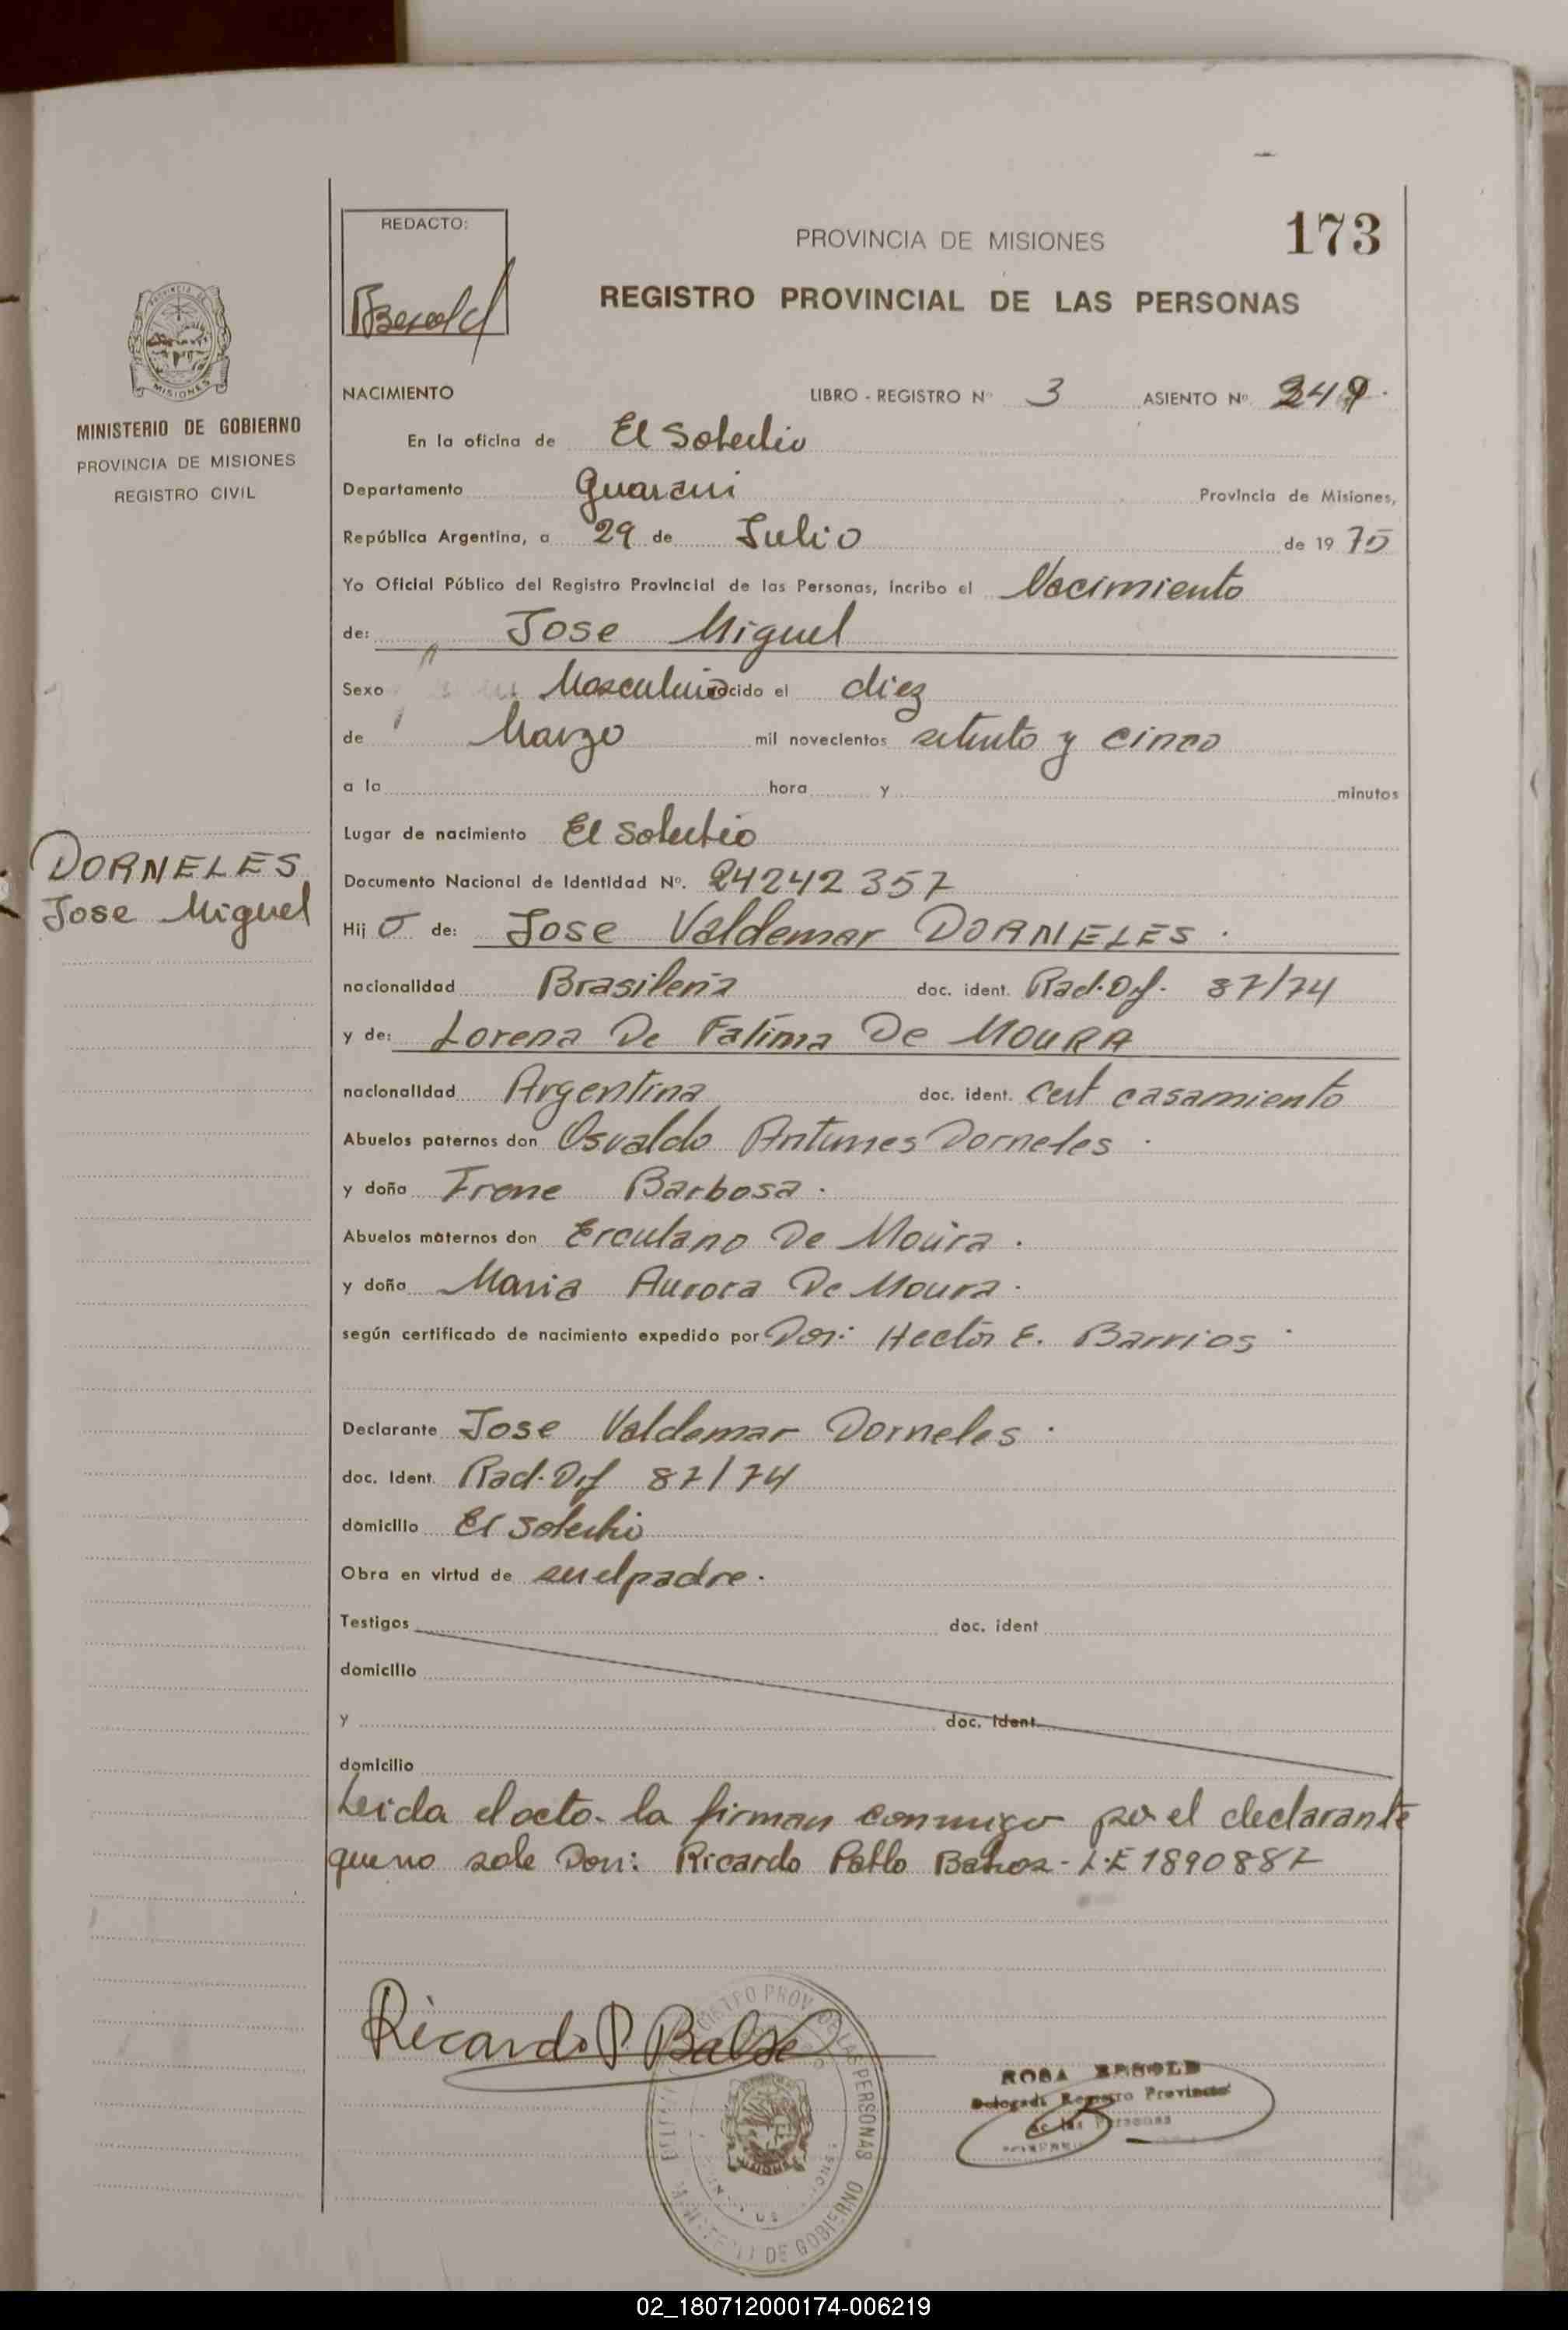 173
REDACTO:
PROVINCIA DE MISIONES
REGISTRO PROVINCIAL DE LAS PERSONAS
MISIONES
MINISTERIO DE GOBIERNO
PROVINCIA DE MISIONES
REGISTRO CIVIL
NACIMIENTO LIBRO - REGISTRO Nº 3 ASIENTO Nº 249.
En la oficina de El Soberbio
Departamento Guarani Provincia de Misiones,
República Argentina, a 29 de Julio de 1975
Yo Oficial Público del Registro Provincial de las Personas, incribo el Nacimiento
de: Jose Miguel
Sexo Masculino nacido el diez
de Marzo mil novecientos setenta y cinco
a la hora y minutos
Lugar de nacimiento El Soberbio
DORNELES
Jose Miguel
Documento Nacional de Identidad Nº. 24242357
Hij o de: Jose Valdemar DORNELES.
nacionalidad Brasileña doc. ident. Rad. Def. 87/74
y de: Lorena De Fatima De MOURA
nacionalidad Argentina doc. ident. Cert casamiento
Abuelos paternos don Osvaldo Antunes Dorneles.
y doña Irene Barbosa.
Abuelos maternos don Erculano De Moura.
y doña Maria Aurora De Moura.
según certificado de nacimiento expedido por Don: Hector E. Barrios
Declarante Jose Valdemar Dorneles.
doc. Ident. Rad. Def 87/74
domicilio El Soberbio
Obra en virtud de ser el padre.
Testigos doc. ident
domicilio
y doc. ident.
domicilio
Leida el acta la firman conmigo por el declarante
que no sabe Don: Ricardo Pablo - L.E 1890887
Ricardo P.
REGISTRO PROV. DE LAS PERSONAS
MINISTERIO DE GOBIERNO
ROSA BERGOLD
Delegada Registro Provincial
de las Personas
02_180712000174-006219